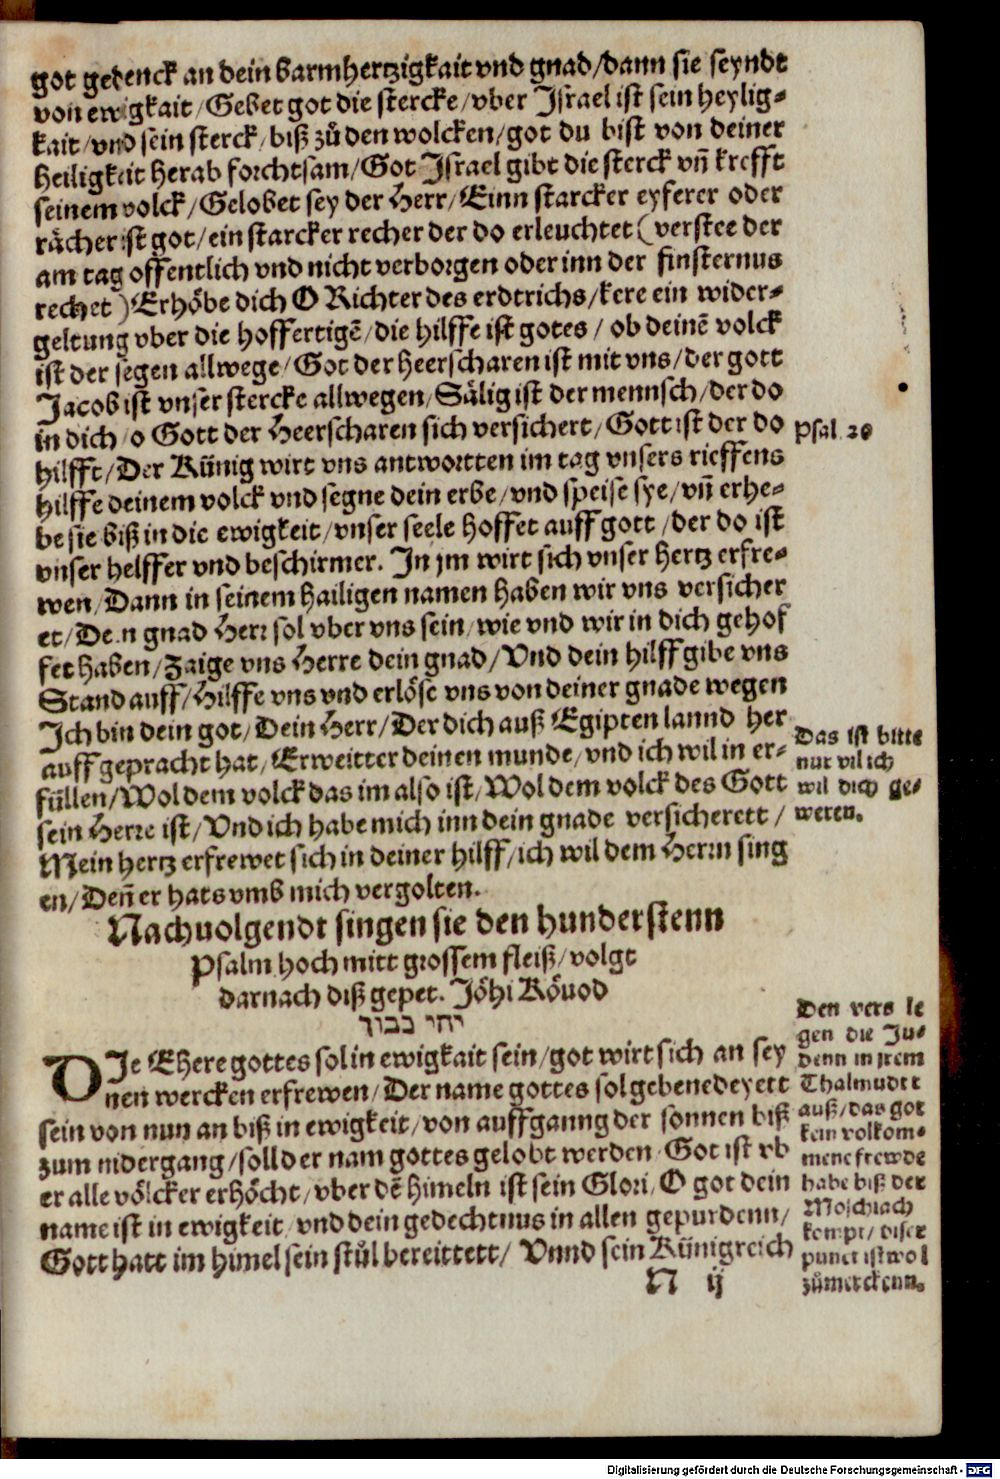 got gedenck an dein barmhertzigkait vnd gnad/dann sie seyndt
von ewigkait/Gebet got die stercke/vber Jsrael ist sein heylig-
kait/vnd sein sterck/biß zů den wolcken/got du bist von deiner
heiligkeit herab forchtsam/Got Jsrael gibt die sterck vñ krefft
seinem volck/Gelobet sey der Herr/Einn starcker eyferer oder
rächer ist got/ein starcker recher der do erleuchtet (verstee der
am tag offentlich vnd nicht verborgen oder inn der finsternus
rechet) Erhöbe dich O Richter des erdtrichs/kere ein wider-
geltung vber die hoffertigē/die hilffe ist gotes/ob deinē volck
ist der segen allwege/Got der heerscharen ist mit vns/der gott
Jacob ist vnser stercke allwegen/Sälig ist der mennsch/der do
in dich/o Gott der Heerscharen sich versichert/Gott ist der do
hilfft/Der Künig wirt vns antwortten im tag vnsers rieffens
hilffe deinem volck vnd segne dein erbe/vnd speise sye/vñ erhe-
be sie biß in die ewigkeit/vnser seele hoffet auff gott/der do ist
vnser helffer vnd beschirmer. Jn jm wirt sich vnser hertz erfre-
wen/Dann in seinem hailigen namen haben wir vns versicher
et/Dein gnad Herr sol vber vns sein/wie vnd wir in dich gehof
fet haben/Zaige vns Herre dein gnad/Vnd dein hilff gibe vns
Stand auff/Hilffe vns vnd erlöse vns von deiner gnade wegen
Jch bin dein got/Dein Herr/Der dich auß Egipten lannd her
auff gepracht hat/Erweitter deinen munde/vnd ich wil in er-
füllen/Wol dem volck das im also ist/Wol dem volck des Gott
sein Herre ist/Vnd ich habe mich inn dein gnade versicherett/
Mein hertz erfrewet sich in deiner hilff/ich wil dem Herrn sing
en/Deñ er hats vmb mich vergolten.
Psal. 20
Das ist bitte
nur vil ich
wil dich ge-
weren.
Nachuolgendt singen sie den hunderstenn
Psalm hoch mitt grossem fleiß/volgt
darnach diß gepet. Jöhi Köuod
יחי כבוך
DJe Ehere gottes sol in ewigkait sein/got wirt sich an sey
nen wercken erfrewen/Der name gottes sol gebenedeyett
sein von nun an biß in ewigkeit/von auffganng der sonnen biß
zum nidergang/soll der nam gottes gelobt werden/Got ist vb
er alle völcker erhöcht/vber dē himeln ist sein Glori/O got dein
name ist in ewigkeit/vnd dein gedechtnus in allen gepurdenn/
Gott hatt im himel sein stůl bereittett/Vnnd sein Künigreich
Den vers le
gen die Ju-
denn in jrem
Thalmudt
auß/das got
kein volkom-
mene frewde
habe biß der
Moschiach
kompt/diser
punct ist wol
zůmerckenn.
N ij
Digitalisierung gefördert durch die Deutsche Forschungsgemeinschaft - DFG